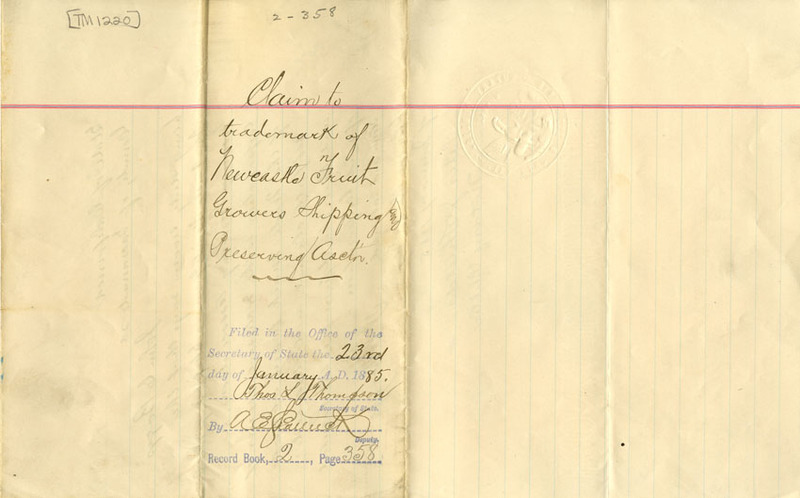 [TM1220]
2-358
Claim to
trademark of
Newcastle Fruit
Growers Shipping &
Preserving Asct'n.
Filed in the Office of the
Secretary of State the 23rd
day of January A.D. 1885.
Thos L Thompson
Secretary of State.
By A E
Deputy.
Record Book, 2, Page 358